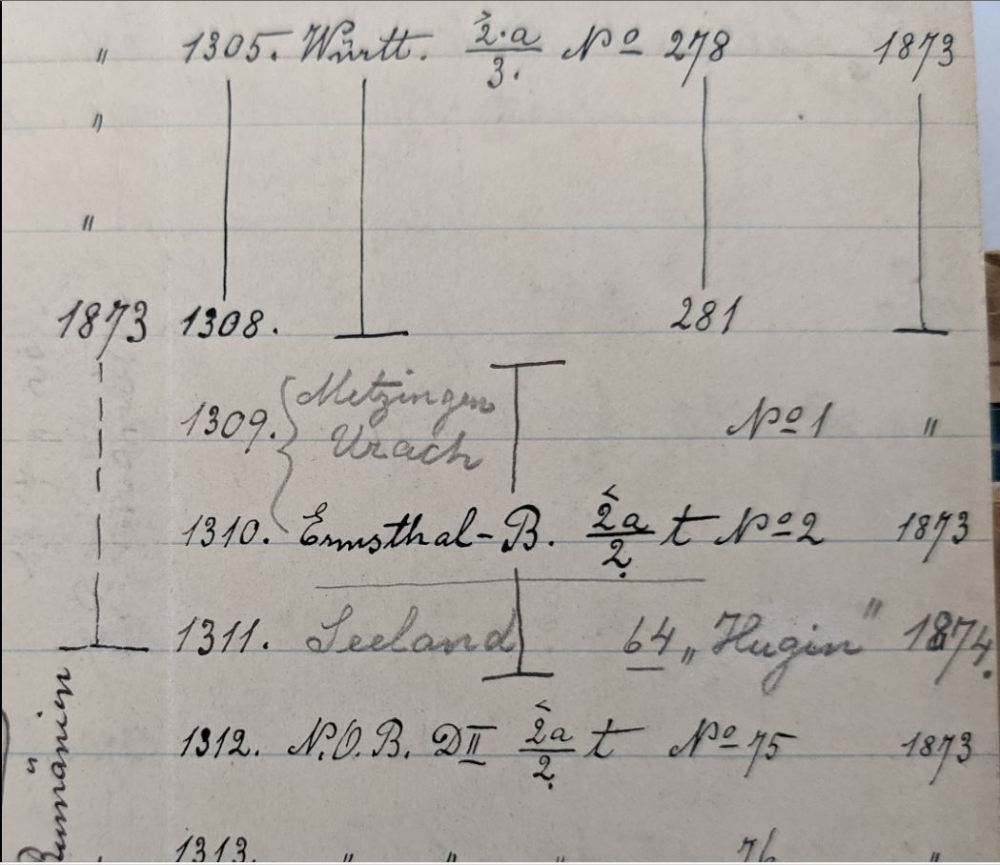 " 1305. Württ. 2·a/3. No 278 1873
"
"
1873 1308. 281
1309. Metzingen No 1 "
Urach
1310. Ermsthal-B. 2a/2. t No 2 1873
1311. Seeland 64 „Hugin" 1874.
1312. N.O.B. DII 2a/2. t No 75 1873
1313. " " " 76 "
Rumänien